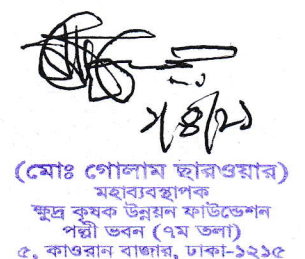 ২/৪/২১
(মোঃ গোলাম ছারওয়ার)
মহাব্যবস্থাপক
ক্ষুদ্র কৃষক উন্নয়ন ফাউন্ডেশন
পল্লী ভবন (৭ম তলা)
৫, কাওরান বাজার, ঢাকা-১২১৫